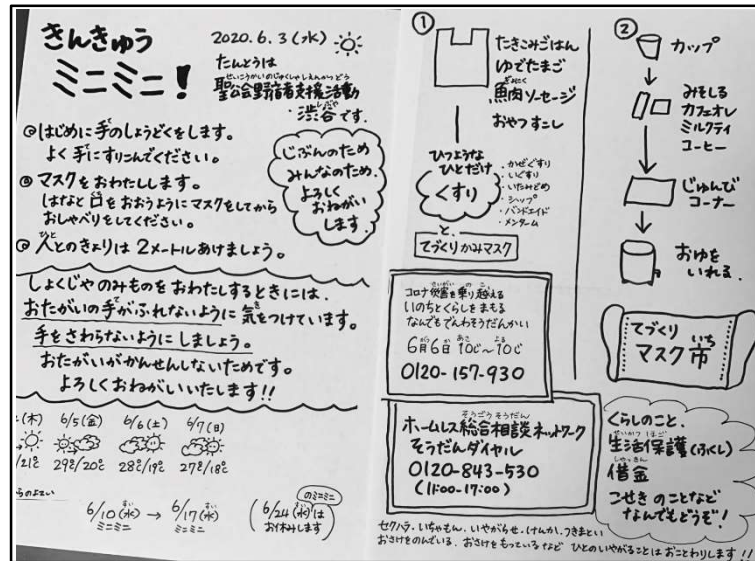 きんきゅう
ミニミニ！
2020.6.3(水)
たんとうは
せいこうかいのじゅくしゃしえんかつどう
聖公会野宿者支援活動
しぶや
・渋谷です.
◎はじめに手のしょうどくをします。
よく手にすりこんでください。
◎マスクをおわたしします。
はなと口をおおうようにマスクをしてから
おしゃべりをしてください。
◎人とのきょりは2メートルあけましょう。
じぶんのため
みんなのため.
よろしく
おねがい
します.
しょくじやのみものをおわたしするときには.
おたがいの手がふれないように気をつけています。
手をさわらないようにしましょう。
おたがいがかんせんしないためです。
よろしくおねがいいたします!!
(木) 6/5(金) 6/6(土) 6/7(日)
/21℃ 29℃/20℃ 28℃/19℃ 27℃/18℃
らのよてい
6/10(水) → 6/17(水)
ミニミニ ミニミニ
のミニミニ
(6/24(水)は
お休みします)
①
たきこみごはん
ゆでたまご
ぎょにく
魚肉ソーセージ
おやつすこし
ひつような
ひとだけ
くすり
・かぜぐすり
・いぐすり
・いたみどめ
・シップ
・バンドエイド
・メンターム
と、
てづくりかみマスク
コロナ災害を乗り越える
いのちとくらしをまもる
なんでもでんわそうだんかい
6月6日 10じ〜10じ
0120-157-930
そうごうそうだん
ホームレス総合相談ネットワーク
そうだんダイヤル
0120-843-530
(11:00-17:00)
②
カップ
みそしる
カフェオレ
ミルクティ
コーヒー
じゅんび
コーナー
おゆを
いれる.
てづくり
いち
マスク市
くらしのこと、
せいかつほご
生活保護(ふくし)
しゃっきん
借金
こせきのことなど
なんでもどうぞ！
セクハラ・いちゃもん・いやがらせ・けんか・つきまとい
おさけをのんでいる. おさけをもっているなど ひとのいやがることはおことわりします!!